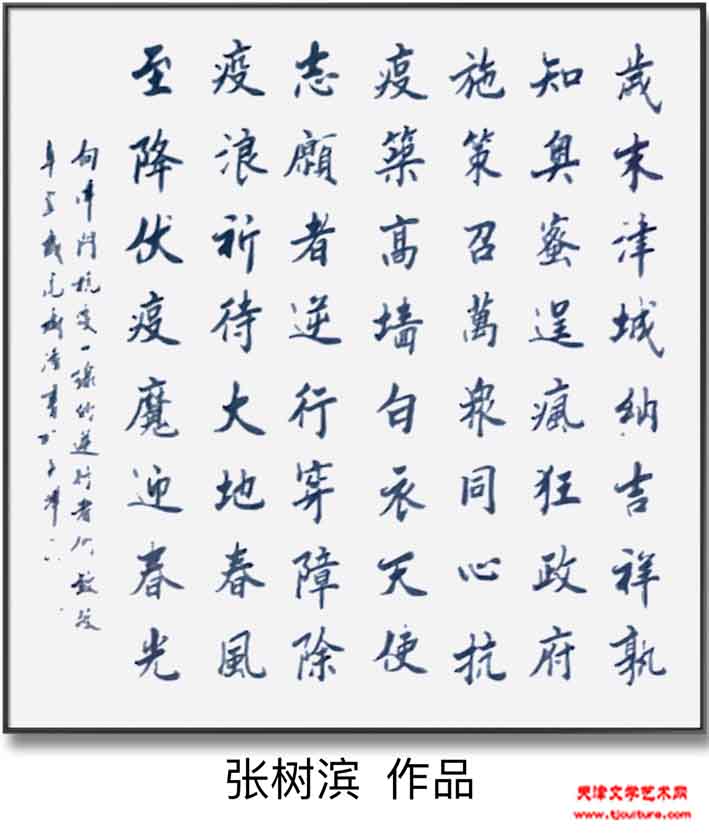 歲末津城納吉祥孰
知奧蜜逞瘋狂政府
施策召萬衆同心抗
疫築高墻白衣天使
志願者逆行穿障除
疫浪祈待大地春風
至降伏疫魔迎春光
向津門抗疫一線的逆行者们致敬
樹濱書於天津
张树滨 作品
天津文学艺术网
www.tjculture.com